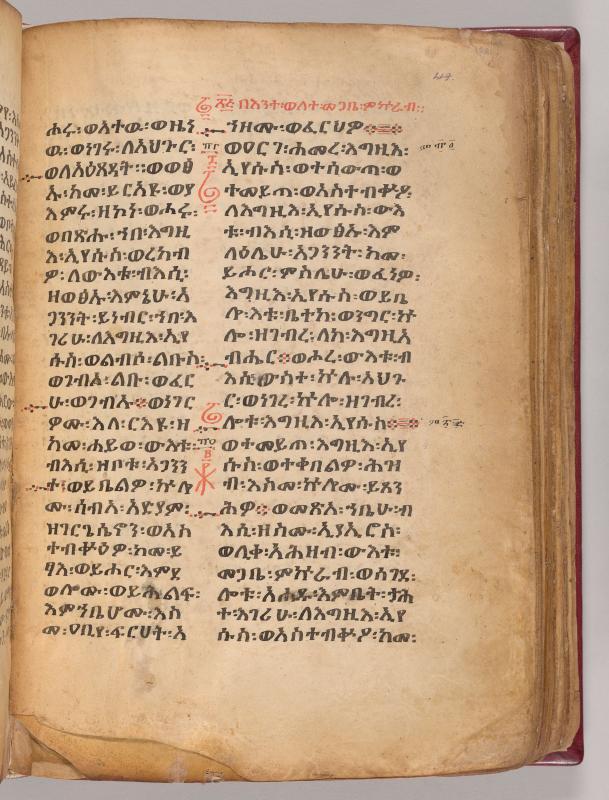 በእንተ፡ወለተ፡መጋቤ፡ምኵራብ።
ሐሩ፡ወአተዉ፡ወዜነ
ዉ፡ወነገሩ፡ለአህጉር፡
ወለአዕጻዳት፡፡ወወፅ
ኡ፡ከመ፡ይርአዩ፡ወያ
እምሩ፡ዘኮነ፡ወሖሩ፡
ወበጽሑ፡ኀበ፡እግዚ
እ፡ኢየሱስ፡ወረከብ
ዎ፡ለውእቱ፡ብእሲ፡
ዘወፅኡ፡እምኔሁ፡አ
ጋንንት፡ይነብር፡ኀበ፡እ
ገሪሁ፡ለእግዚእ፡ኢየ
ሱስ፡ወልብሶ፡ልቡስ፡
ወገብአ፡ልቡ፡ወፈር
ሁ፡ወገብኡ፡ወነገር
ዎሙ፡እለ፡ርእዩ፡ዘ
ከመ፡ሐይወ፡ውእቱ፡
ብእሲ፡ዘቦቱ፡አጋንን
ት፡ወይቤልዎ፡ኵሉ
ሙ፡ሰብአ፡አድያም፡
ዘጌርጌሴኖን፡ወአስ
ተብቍዕዎ፡ከመ፡ይ
ፃእ፡ወይሖር፡እምደ
ወሎሙ፡ወይሕልፍ፡
እምኀቤሆሙ፡እስ
መ፡ዐቢየ፡ፍርሀት፡አ
ኀዘሙ፡ወፈርህዎ
ወዐርገ፡ሐመረ፡እግዚእ፡
ኢየሱስ፡ወተሰውጠ፡ወ
ተመይጠ፡ወአስተብቍዖ፡
ለእግዚእ፡ኢየሱስ፡ውእ
ቱ፡ብእሲ፡ዘወፅኡ፡እም
ላዕሌሁ፡አጋንንት፡ከመ፡
ይሖር፡ምስሌሁ፡ወፈነዎ፡
እግዚእ፡ኢየሱስ፡ወይቤ
ሎ፡እቱ፡ቤተከ፡ወንግር፡ኵ
ሎ፡ዘገብረ፡ለከ፡እግዚአ
ብሔር፡ወሖረ፡ውእቱ፡ብ
እሲ፡ውስተ፡ኵሉ፡አህጉ
ር፡ወነገረ፡ኵሎ፡ዘገብረ፡
ሎቱ፡እግዚእ፡ኢየሱስ
ወተመይጠ፡እግዚእ፡ኢየ
ሱስ፡ወተቀበልዎ፡ሕዝ
ብ፡እስመ፡ኵሎሙ፡ይጸን
ሕዎ፡ወመጽአ፡ኀቤሁ፡ብ
እሲ፡ዘስሙ፡ኢያኢሮስ፡
ወሊቀ፡አሕዛብ፡ውእቱ፡
መጋቤ፡ምኵራብ፡ወሰገደ፡
ሎቱ፡አሐዱ፡እምቤት፡ታሕ
ተ፡እገሪሁ፡ለእግዚእ፡ኢየ
ሱስ፡ወአስተብቍዖ፡ከመ፡